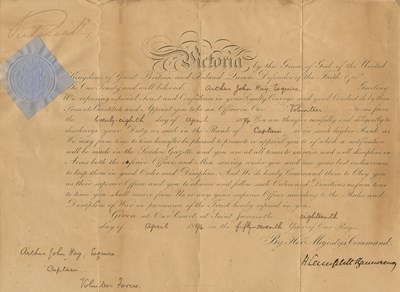 Victoria by the Grace of God of the United
Kingdom of Great Britain and Ireland Queen, Defender of the Faith &c.
To Our Trusty and well beloved Arthur John Hay, Esquire. Greeting
We reposing especial Trust and Confidence in your Loyalty Courage and good Conduct do by these
Presents Constitute and Appoint you to be an Officer in Our Volunteer Force from
the day of April 1894 You are therefore carefully and diligently to
discharge your Duty as such in the Rank of Captain or in such higher Rank as
We may from time to time hereafter be pleased to promote or appoint you to of which a notification
will be made in the London Gazette and you are at all times to exercise and well discipline in
Arms both the Officers and Men serving under you and use your best endeavours
to keep them in good Order and Discipline. And We do hereby Command them to Obey you
as their superior Officer and you to observe and follow such Orders and Directions as from time
to time you shall receive from Us or any your superior Officer according to the Rules and
Discipline of War in pursuance of the Trust hereby reposed in you.
Given at Our Court at Saint James's the eighteenth
day of April 1894 in the fifty-seventh Year of Our Reign
By Her Majesty's Command.
H Campbell Bannerman
Arthur John Hay, Esquire
Captain
Volunteer Force.